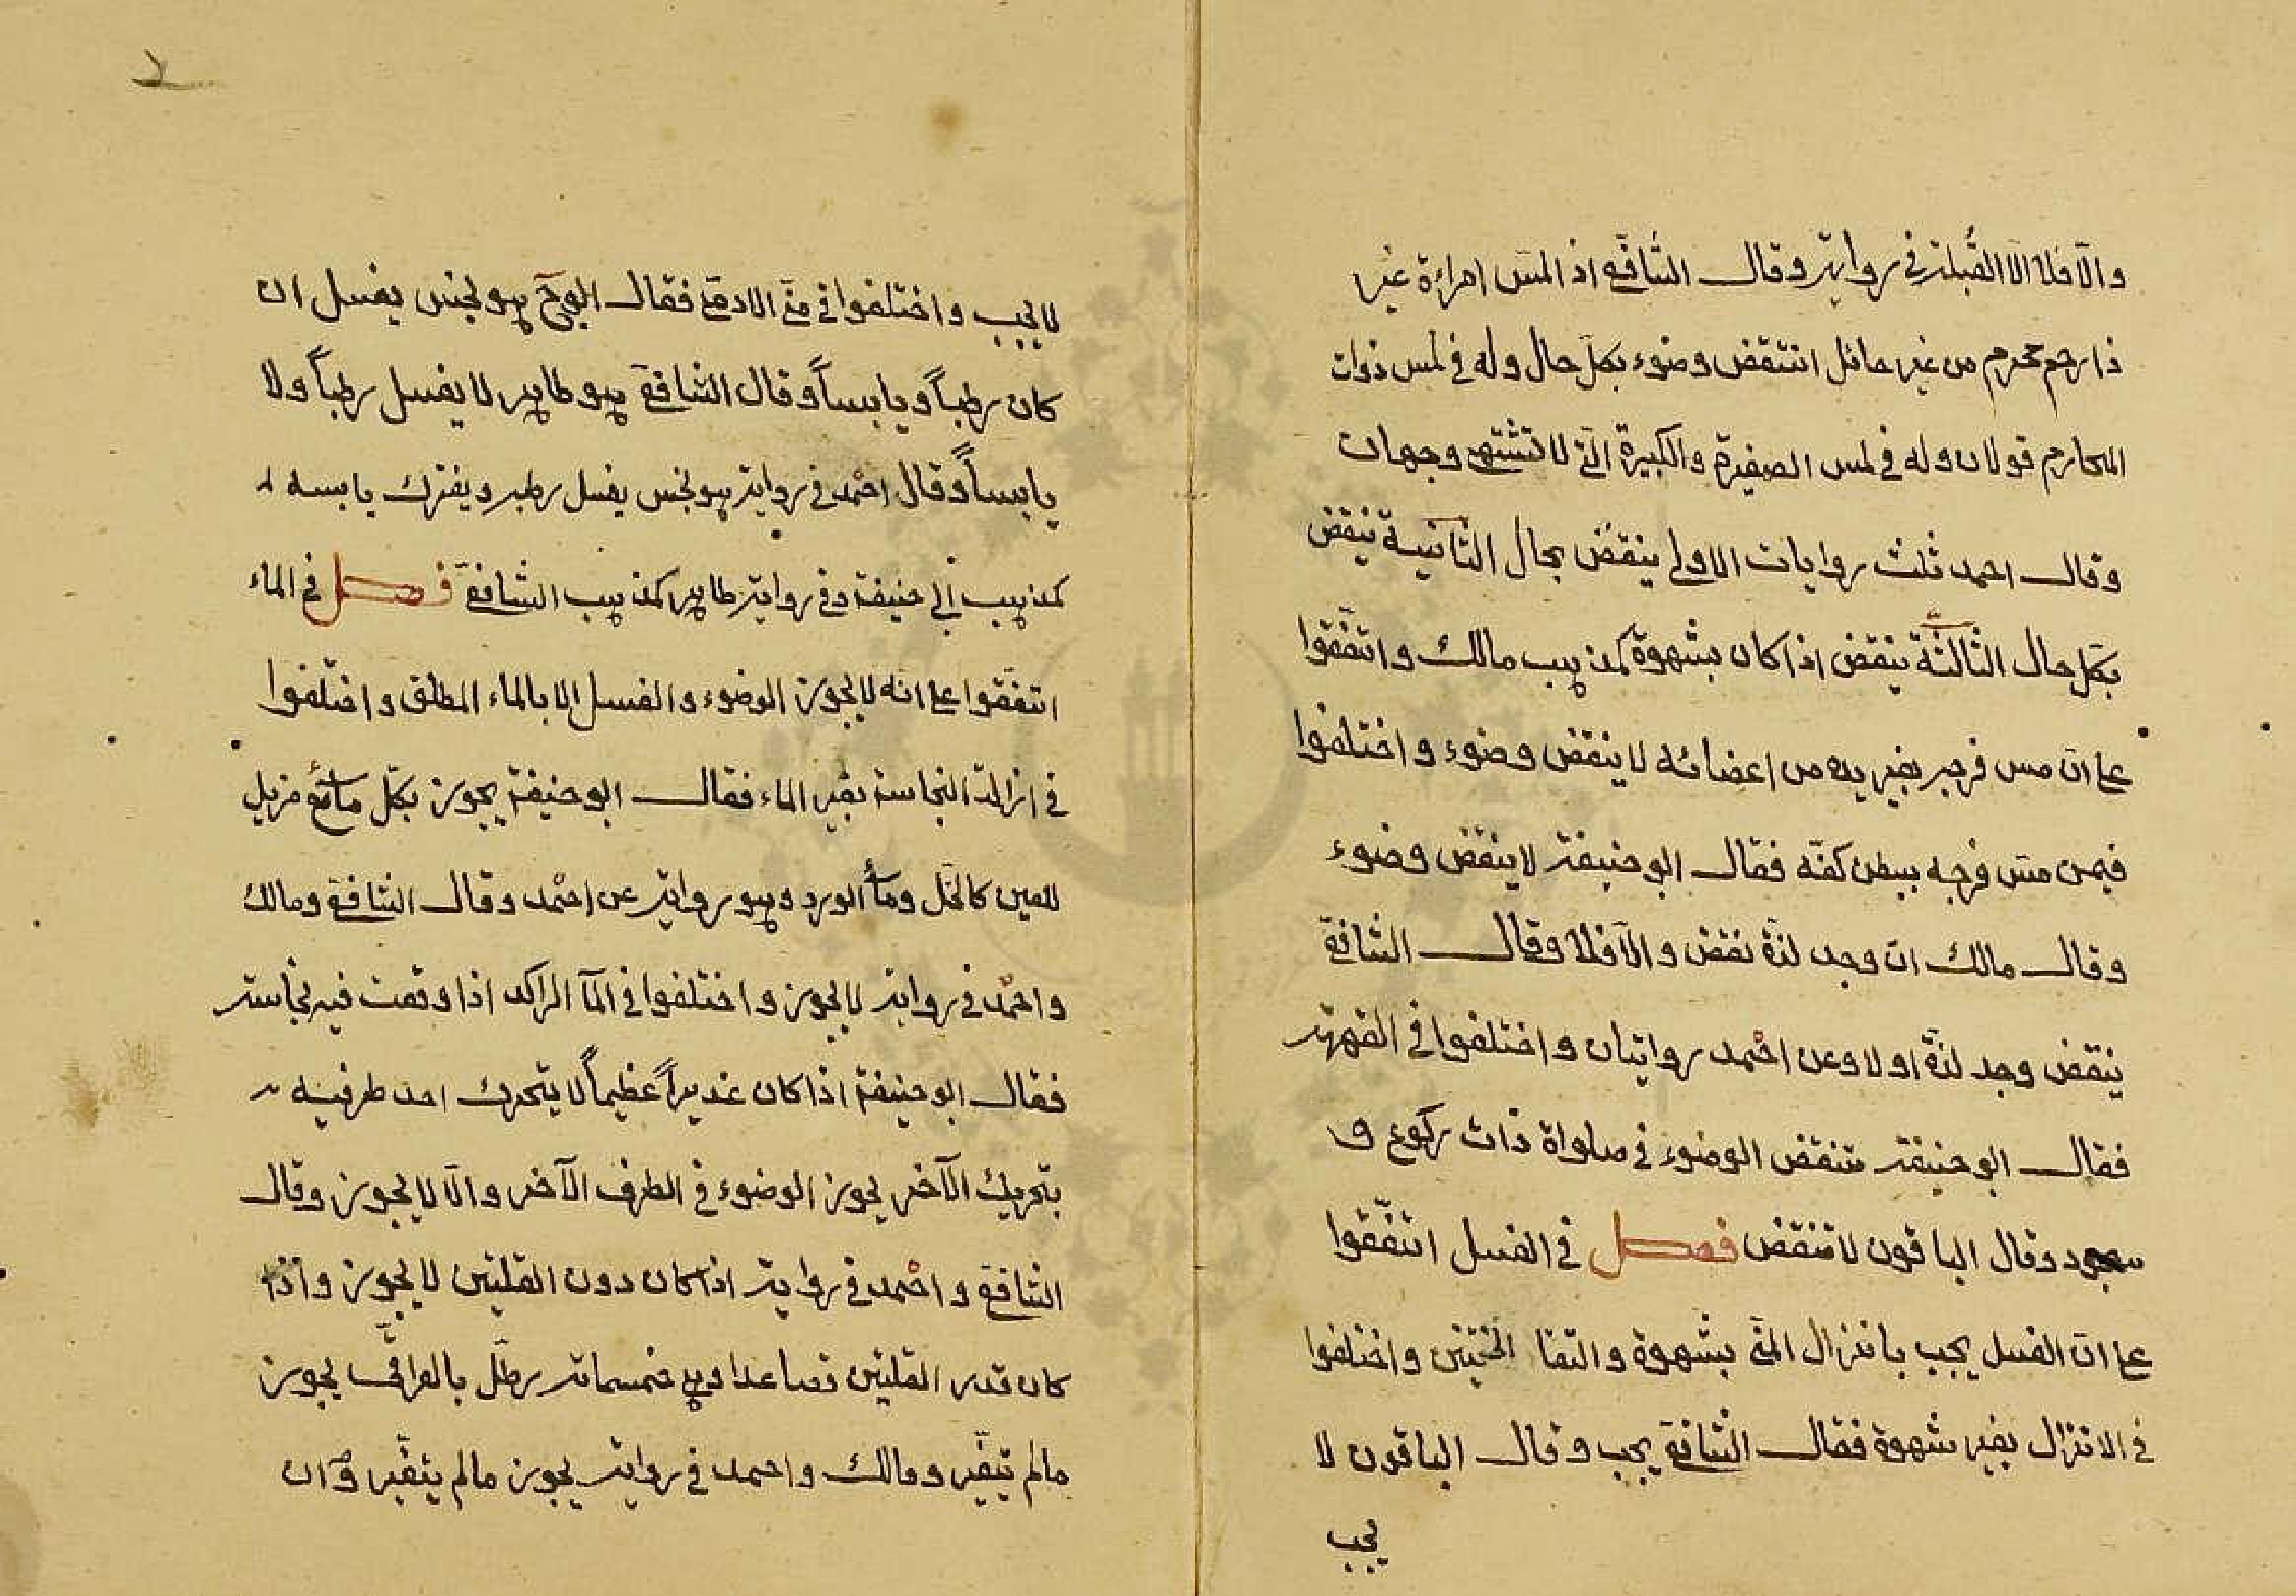 والّا فلا الّا القُبلة في رواية وقال الشافعي اذ المس امراءة غير
ذا رحم محرم من غير حائل انتقض وضوء بكلّ حال وله في لمس ذوات
المحارم قولان وله في لمس الصغيرة والكبيرة الّتي لا تشتهى وجهان
وقال احمد ثلث روايات الاولى ينقض بحال الثانية ينقض
بكلّ حال الثالثة ينقض اذا كان بشهوة كمذهب مالك واتفّقوا
على انّ مس فرجه بغير يده من اعضائه لا ينقض وضوء واختلفوا
فيمن مسّ فرجه ببطن كفّه فقال ابو حنيفة لا ينقض وضوء
وقال مالك ان وجد لذّة نقض والّا فلا وقال الشافعي
ينقض وجد لذّة او لا وعن احمد روايتان واختلفوا في القهقهة
فقال ابو حنيفة تنقض الوضوء في صلواة ذات ركوع و
سجود وقال الباقون لا تنقض فصل في الغسل اتفّقوا
على انّ الغسل يجب بانزال المنّي بشهوة والتقا الختنين واختلفوا
في الانزال بغير شهوة فقال الشافعي يجب وقال الباقون لا
يجب
لا يجب واختلفوا في منّي الادمّي فقال ابوح هو نجس يغسل ان
كان رطباً و يابساً وقال الشافعي هو طاهر لا يغسل رطباً ولا
يابساً وقال احمد في رواية هو نجس يغسل رطبه ويفرك يابسه
كمذهب ابي حنيفة وفي رواية طاهر كمذهب الشافعي فصل في الماء
اتفّقوا على انه لا يجوز الوضوء والغسل الا بالماء المطلق واختلفوا
في ازالة النجاسة بغير الماء فقال ابو حنيفة يجوز بكلّ مائع مزيل
للعين كالخلّ وماء الورد وهو رواية عن احمد وقال الشافعي ومالك
واحمد في رواية لا يجوز واختلفوا في المآ الراكد اذا وقعت فيه نجاسة
فقال ابو حنيفة اذا كان غديراً عظيماً لا يتحرك احد طرفيه
بتحريك الآخر يجوز الوضوء في الطرف الآخر والّا لا يجوز وقال
الشافعي واحمد في رواية اذا كان دون القلتين لا يجوز واذا
كان قدر القلتين فصاعدا وهي خمسماة رطل بالعراقّي يجوز
مالم يتغيّر ومالك واحمد في رواية يجوز مالم يتغيّر وان